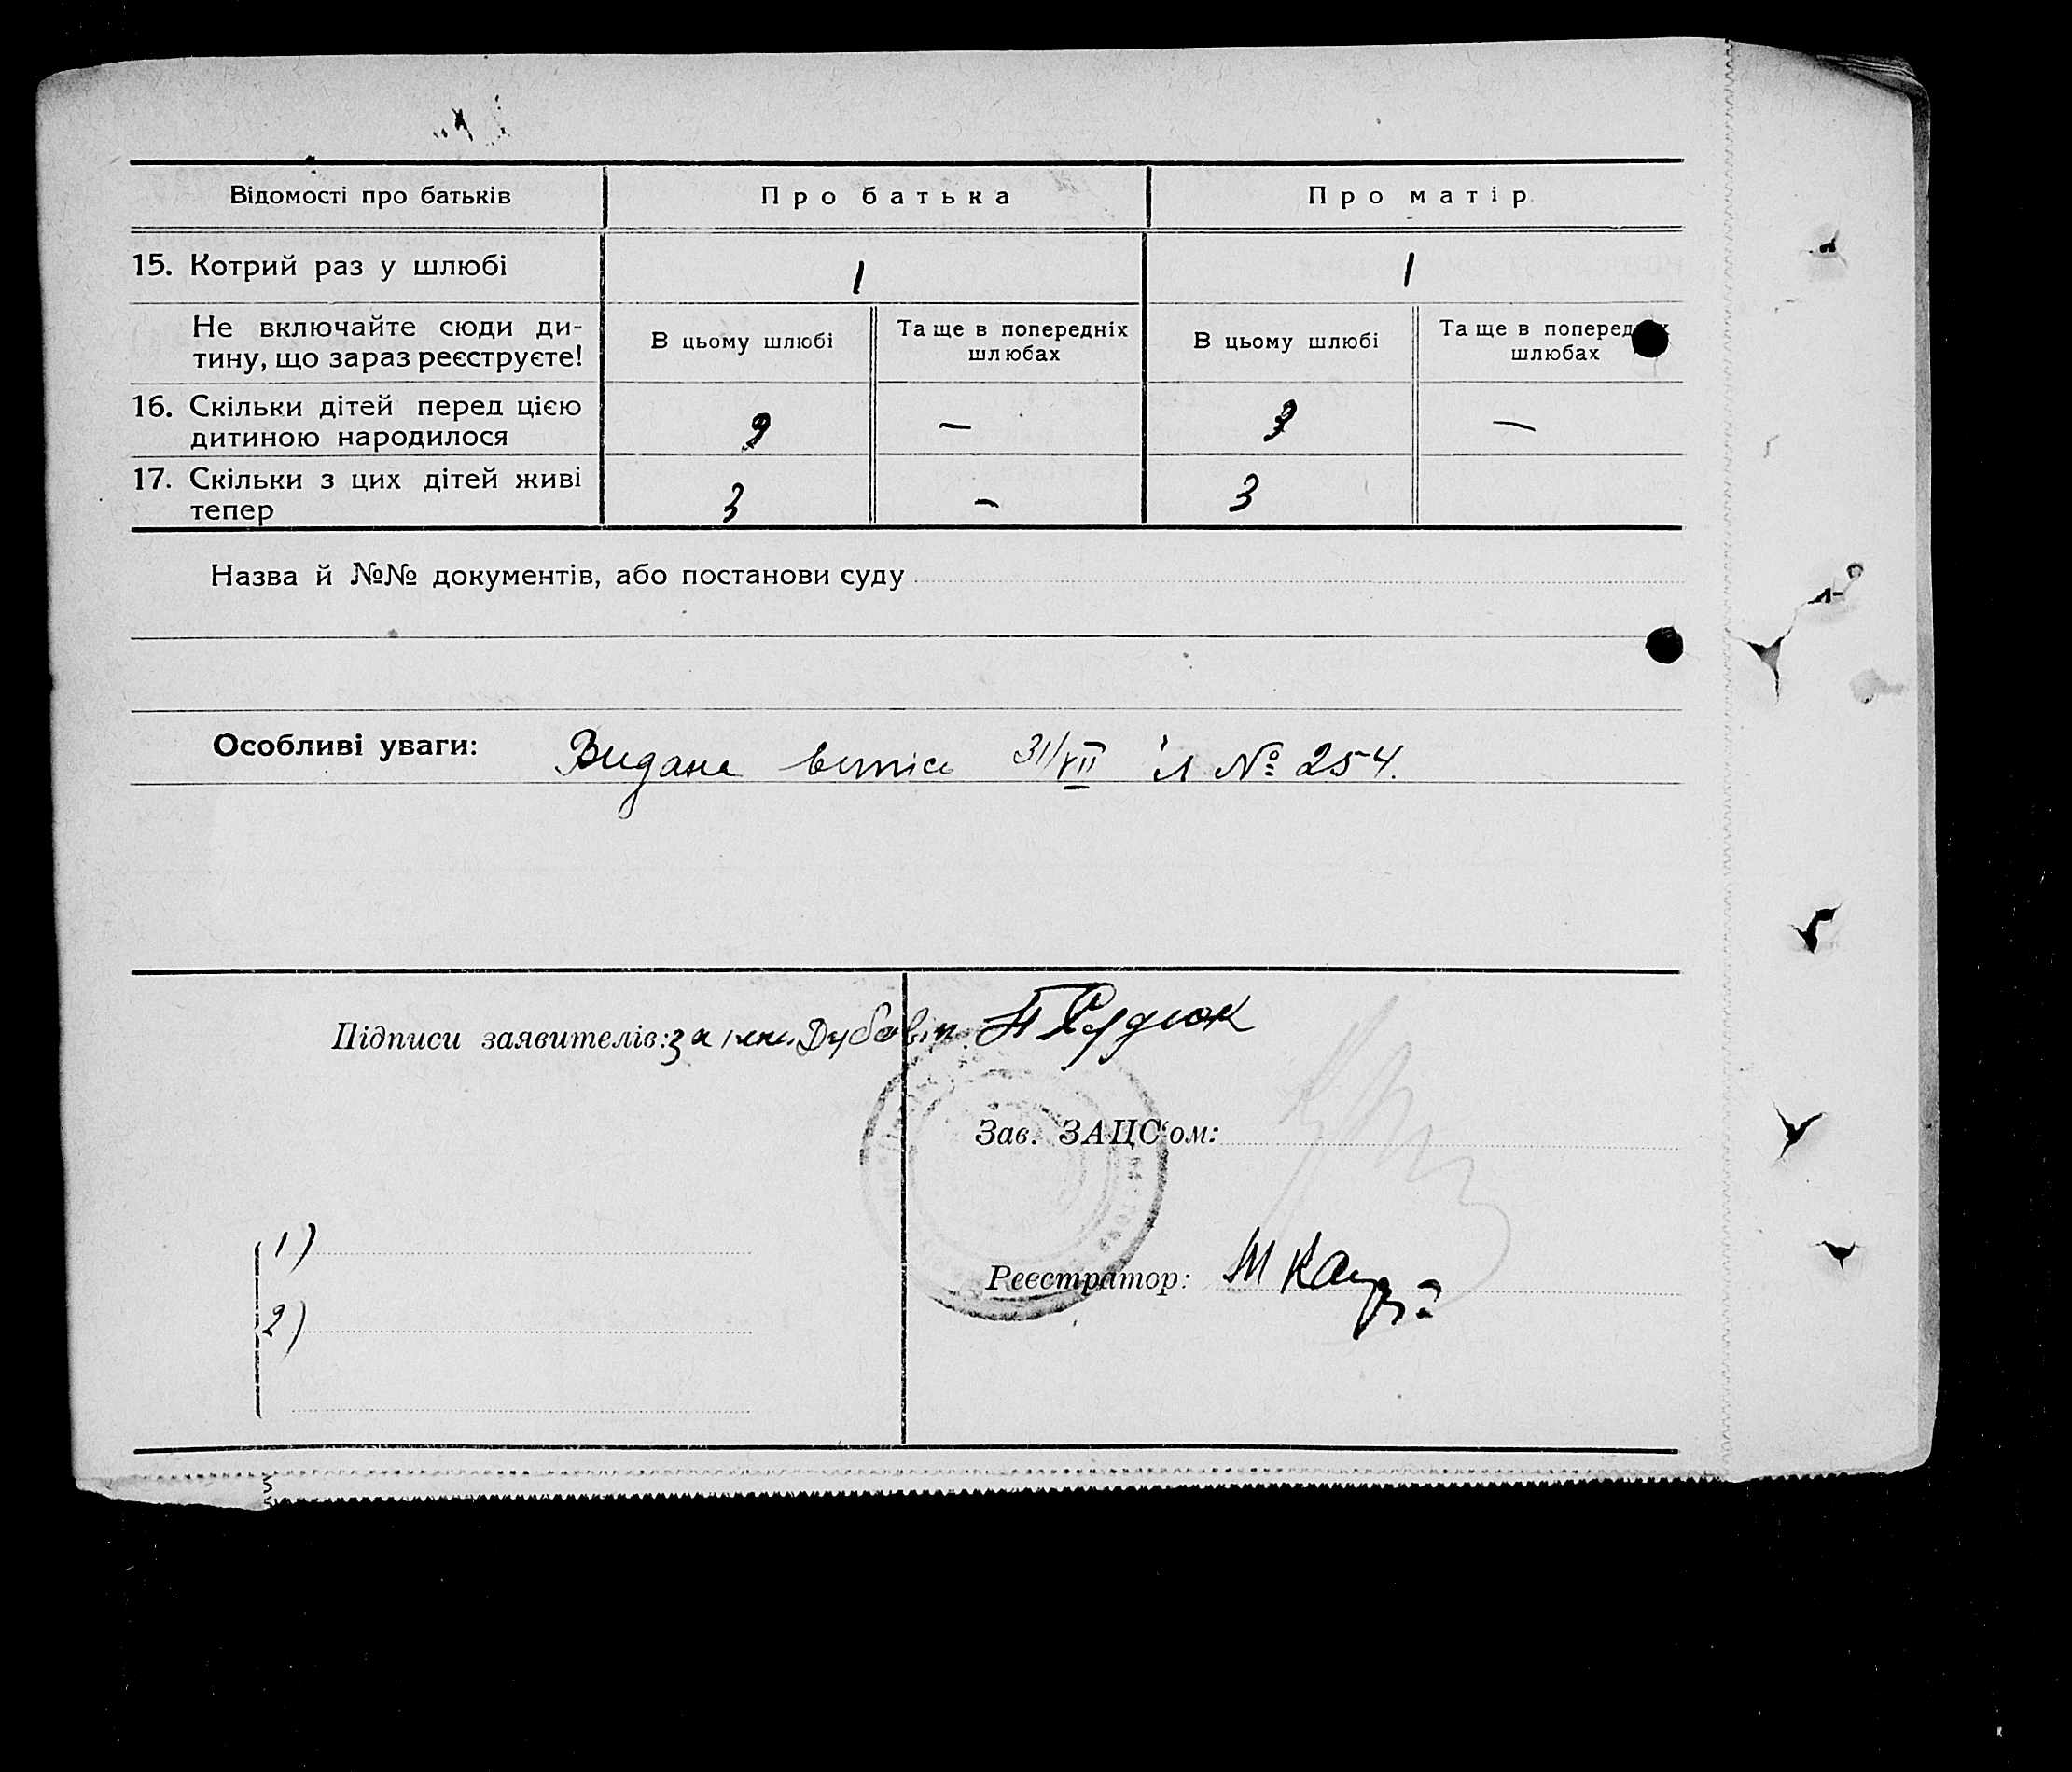 Відомості про батьків Про батька Про матір
15. Котрий раз у шлюбі 1 1
Не включайте сюди ди-
тину, що зараз реєструєте!
В цьому шлюбі Та ще в попередніх шлюбах В цьому шлюбі Та ще в попередніх шлюбах
16. Скільки дітей перед цією
дитиною народилося 9 —  —
17. Скільки з цих дітей живі
тепер 3 – 3
Назва й №№ документів, або постанови суду
Особливі уваги: Видана випись 31/VII № 254.
Підписи заявителів: за
Зав. ЗАЦС'ом:
Реєстратор:
1)
2)